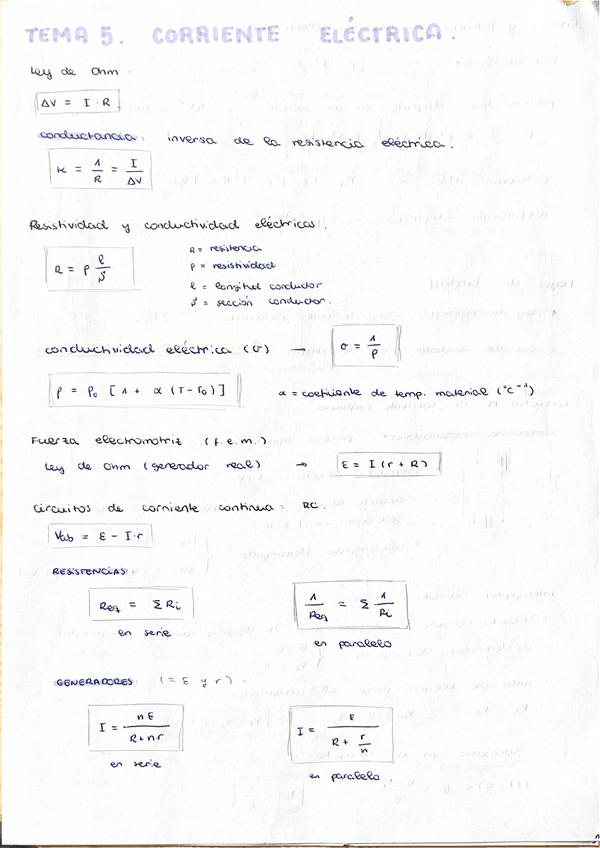 TEMA 5. CORRIENTE ELÉCTRICA.
Ley de Ohm.
ΔV = I · R
conductancia: inversa de la resistencia eléctrica.
K = 1/R = I/ΔV
Resistividad y conductividad eléctricas.
R = ρ ℓ/S
R = resistencia
ρ = resistividad
ℓ = longitud conductor
S = sección conductor.
conductividad eléctrica (σ) → σ = 1/ρ
ρ = ρ₀ [1 + α (T - T₀)]
α = coeficiente de temp. material (°C⁻¹)
Fuerza electromotriz (f.e.m.)
Ley de Ohm (generador real) → ε = I (r + R)
Circuitos de corriente continua: RC.
Vab = ε - I·r
RESISTENCIAS:
Req = Σ Ri
en serie
1/Req = Σ 1/Ri
en paralelo
GENERADORES: (= ε y r).
I = nε / R + nr
en serie
I = ε / R + r/n
en paralelo.